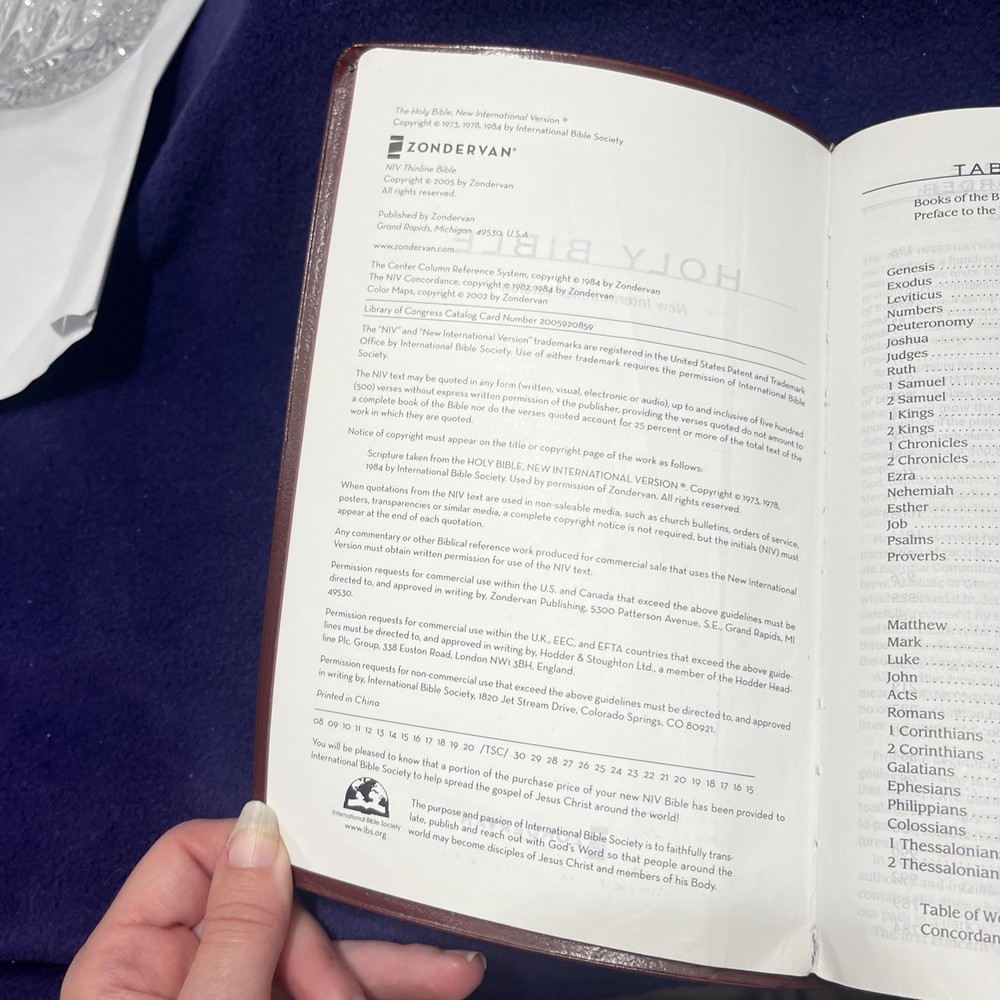 The Holy Bible, New International Version ®
Copyright © 1973, 1978, 1984 by International Bible Society
ZONDERVAN®
NIV Thinline Bible
Copyright © 2005 by Zondervan
All rights reserved.
Published by Zondervan
Grand Rapids, Michigan 49530, U.S.A.
www.zondervan.com
The Center Column Reference System, copyright © 1984 by Zondervan
The NIV Concordance, copyright © 1982, 1984 by Zondervan
Color Maps, copyright © 2002 by Zondervan
Library of Congress Catalog Card Number 2005920859
The "NIV" and "New International Version" trademarks are registered in the United States Patent and Trademark
Office by International Bible Society. Use of either trademark requires the permission of International Bible
Society.
The NIV text may be quoted in any form (written, visual, electronic or audio), up to and inclusive of five hundred
(500) verses without express written permission of the publisher, providing the verses quoted do not amount to
a complete book of the Bible nor do the verses quoted account for 25 percent or more of the total text of the
work in which they are quoted.
Notice of copyright must appear on the title or copyright page of the work as follows:
Scripture taken from the HOLY BIBLE, NEW INTERNATIONAL VERSION ®. Copyright © 1973, 1978,
1984 by International Bible Society. Used by permission of Zondervan. All rights reserved.
When quotations from the NIV text are used in non-saleable media, such as church bulletins, orders of service,
posters, transparencies or similar media, a complete copyright notice is not required, but the initials (NIV) must
appear at the end of each quotation.
Any commentary or other Biblical reference work produced for commercial sale that uses the New International
Version must obtain written permission for use of the NIV text.
Permission requests for commercial use within the U.S. and Canada that exceed the above guidelines must be
directed to, and approved in writing by, Zondervan Publishing, 5300 Patterson Avenue, S.E., Grand Rapids, MI
49530.
Permission requests for commercial use within the U.K., EEC, and EFTA countries that exceed the above guide-
lines must be directed to, and approved in writing by, Hodder & Stoughton Ltd., a member of the Hodder Head-
line Plc. Group, 338 Euston Road, London NW1 3BH, England.
Permission requests for non-commercial use that exceed the above guidelines must be directed to, and approved
in writing by, International Bible Society, 1820 Jet Stream Drive, Colorado Springs, CO 80921.
Printed in China
08 09 10 11 12 13 14 15 16 17 18 19 20 /TSC/ 30 29 28 27 26 25 24 23 22 21 20 19 18 17 16 15
You will be pleased to know that a portion of the purchase price of your new NIV Bible has been provided to
International Bible Society to help spread the gospel of Jesus Christ around the world!
International Bible Society
www.ibs.org
The purpose and passion of International Bible Society is to faithfully trans-
late, publish and reach out with God's Word so that people around the
world may become disciples of Jesus Christ and members of his Body.
TAB
Books of the B
Preface to the
Genesis
Exodus
Leviticus
Numbers
Deuteronomy
Joshua
Judges
Ruth
1 Samuel
2 Samuel
1 Kings
2 Kings
1 Chronicles
2 Chronicles
Ezra
Nehemiah
Esther
Job
Psalms
Proverbs
Matthew
Mark
Luke
John
Acts
Romans
1 Corinthians
2 Corinthians
Galatians
Ephesians
Philippians
Colossians
1 Thessalonian
2 Thessalonian
Table of We
Concordan